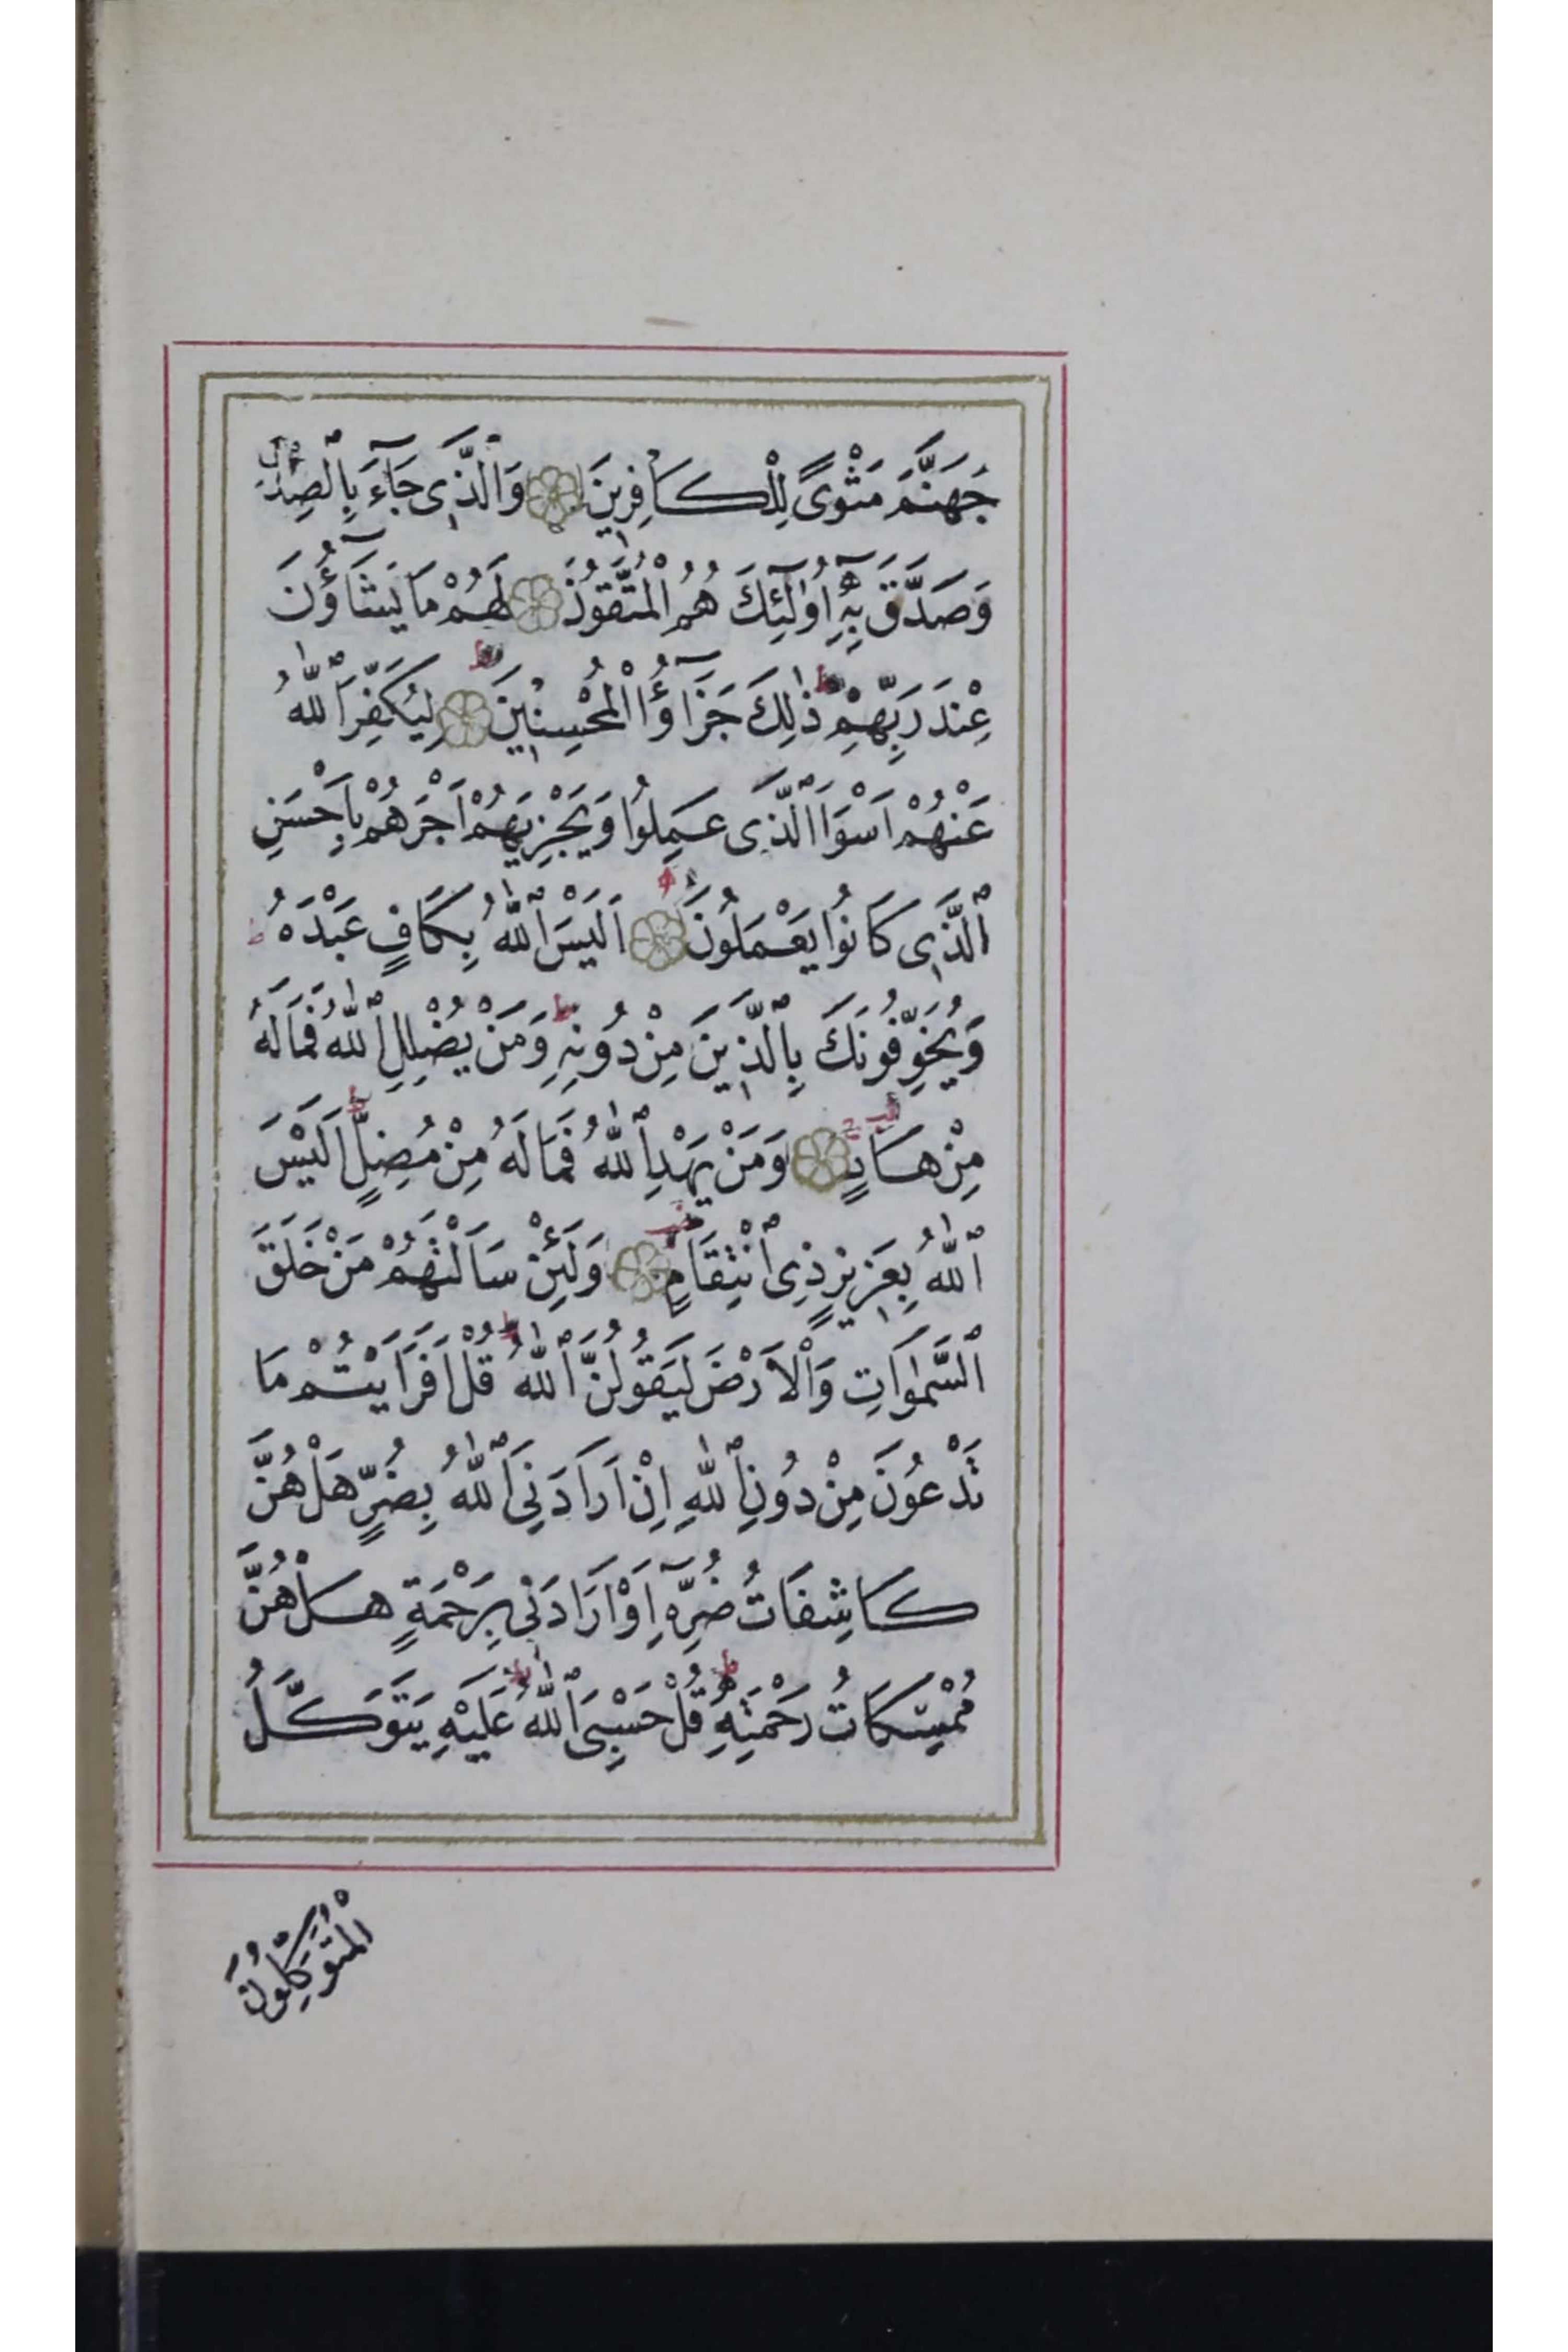 جَهَنَّمَ مَثْوًى لِلْكَافِرِينَ وَالَّذِى جَآءَ بِالصِّدْقِ
وَصَدَّقَ بِهِٓ اُولٰٓئِكَ هُمُ الْمُتَّقُونَ لَهُمْ مَا يَشَآؤُنَ
عِنْدَ رَبِّهِمْ ذٰلِكَ جَزَآؤُا الْمُحْسِنِينَ لِيُكَفِّرَ اللّٰهُ
عَنْهُمْ اَسْوَاَ الَّذِى عَمِلُوا وَيَجْزِيَهُمْ اَجْرَهُمْ بِاَحْسَنِ
الَّذِى كَانُوا يَعْمَلُونَ اَلَيْسَ اللّٰهُ بِكَافٍ عَبْدَهُ ط
وَيُخَوِّفُونَكَ بِالَّذِينَ مِنْ دُونِهِ ط وَمَنْ يُضْلِلِ اللّٰهُ فَمَا لَهُ
مِنْ هَادٍ وَمَنْ يَهْدِ اللّٰهُ فَمَا لَهُ مِنْ مُضِلٍّ ط اَلَيْسَ
اللّٰهُ بِعَزِيزٍ ذِى انْتِقَامٍ وَلَئِنْ سَاَلْتَهُمْ مَنْ خَلَقَ
السَّمٰوَاتِ وَالْاَرْضَ لَيَقُولُنَّ اللّٰهُ ط قُلْ اَفَرَاَيْتُمْ مَا
تَدْعُونَ مِنْ دُونِ اللّٰهِ اِنْ اَرَادَنِىَ اللّٰهُ بِضُرٍّ هَلْ هُنَّ
كَاشِفَاتُ ضُرِّهِٓ اَوْ اَرَادَنِى بِرَحْمَةٍ هَلْ هُنَّ
مُمْسِكَاتُ رَحْمَتِهِ ط قُلْ حَسْبِىَ اللّٰهُ ط عَلَيْهِ يَتَوَكَّلُ
الْمُتَوَكِّلُونَ